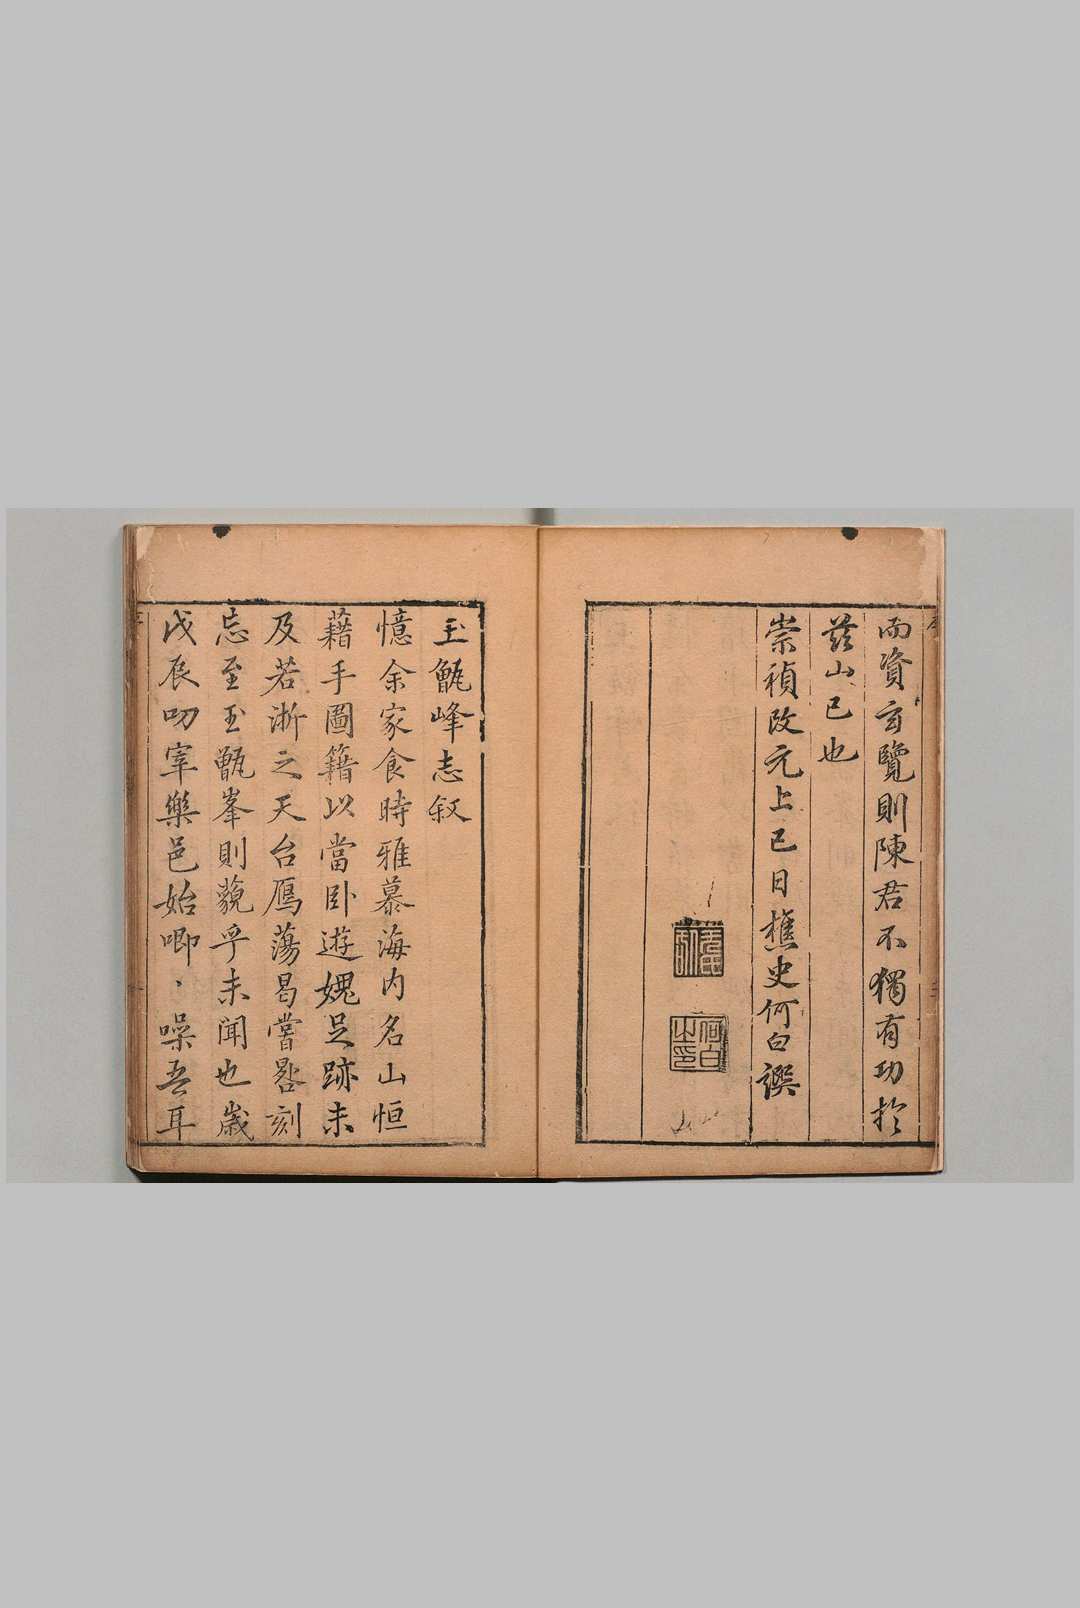 而資玄覽則陳君不獨有功於
茲山已也
崇禎改元上巳日樵史何白譔
何白之印
玉甑峰志叙
憶余家食時雅慕海内名山恒
藉手圖籍以當卧遊媿足跡未
及若浙之天台鴈蕩曷嘗晷刻
忘至玉甑峯則藐乎未聞也歲
戊辰叨宰樂邑始唧、噪吾耳